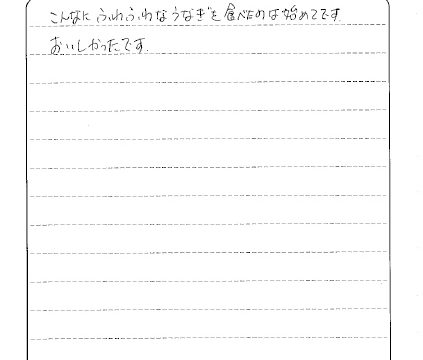 こんなにふわふわなうなぎを食べたのは始めてです
おいしかったです.